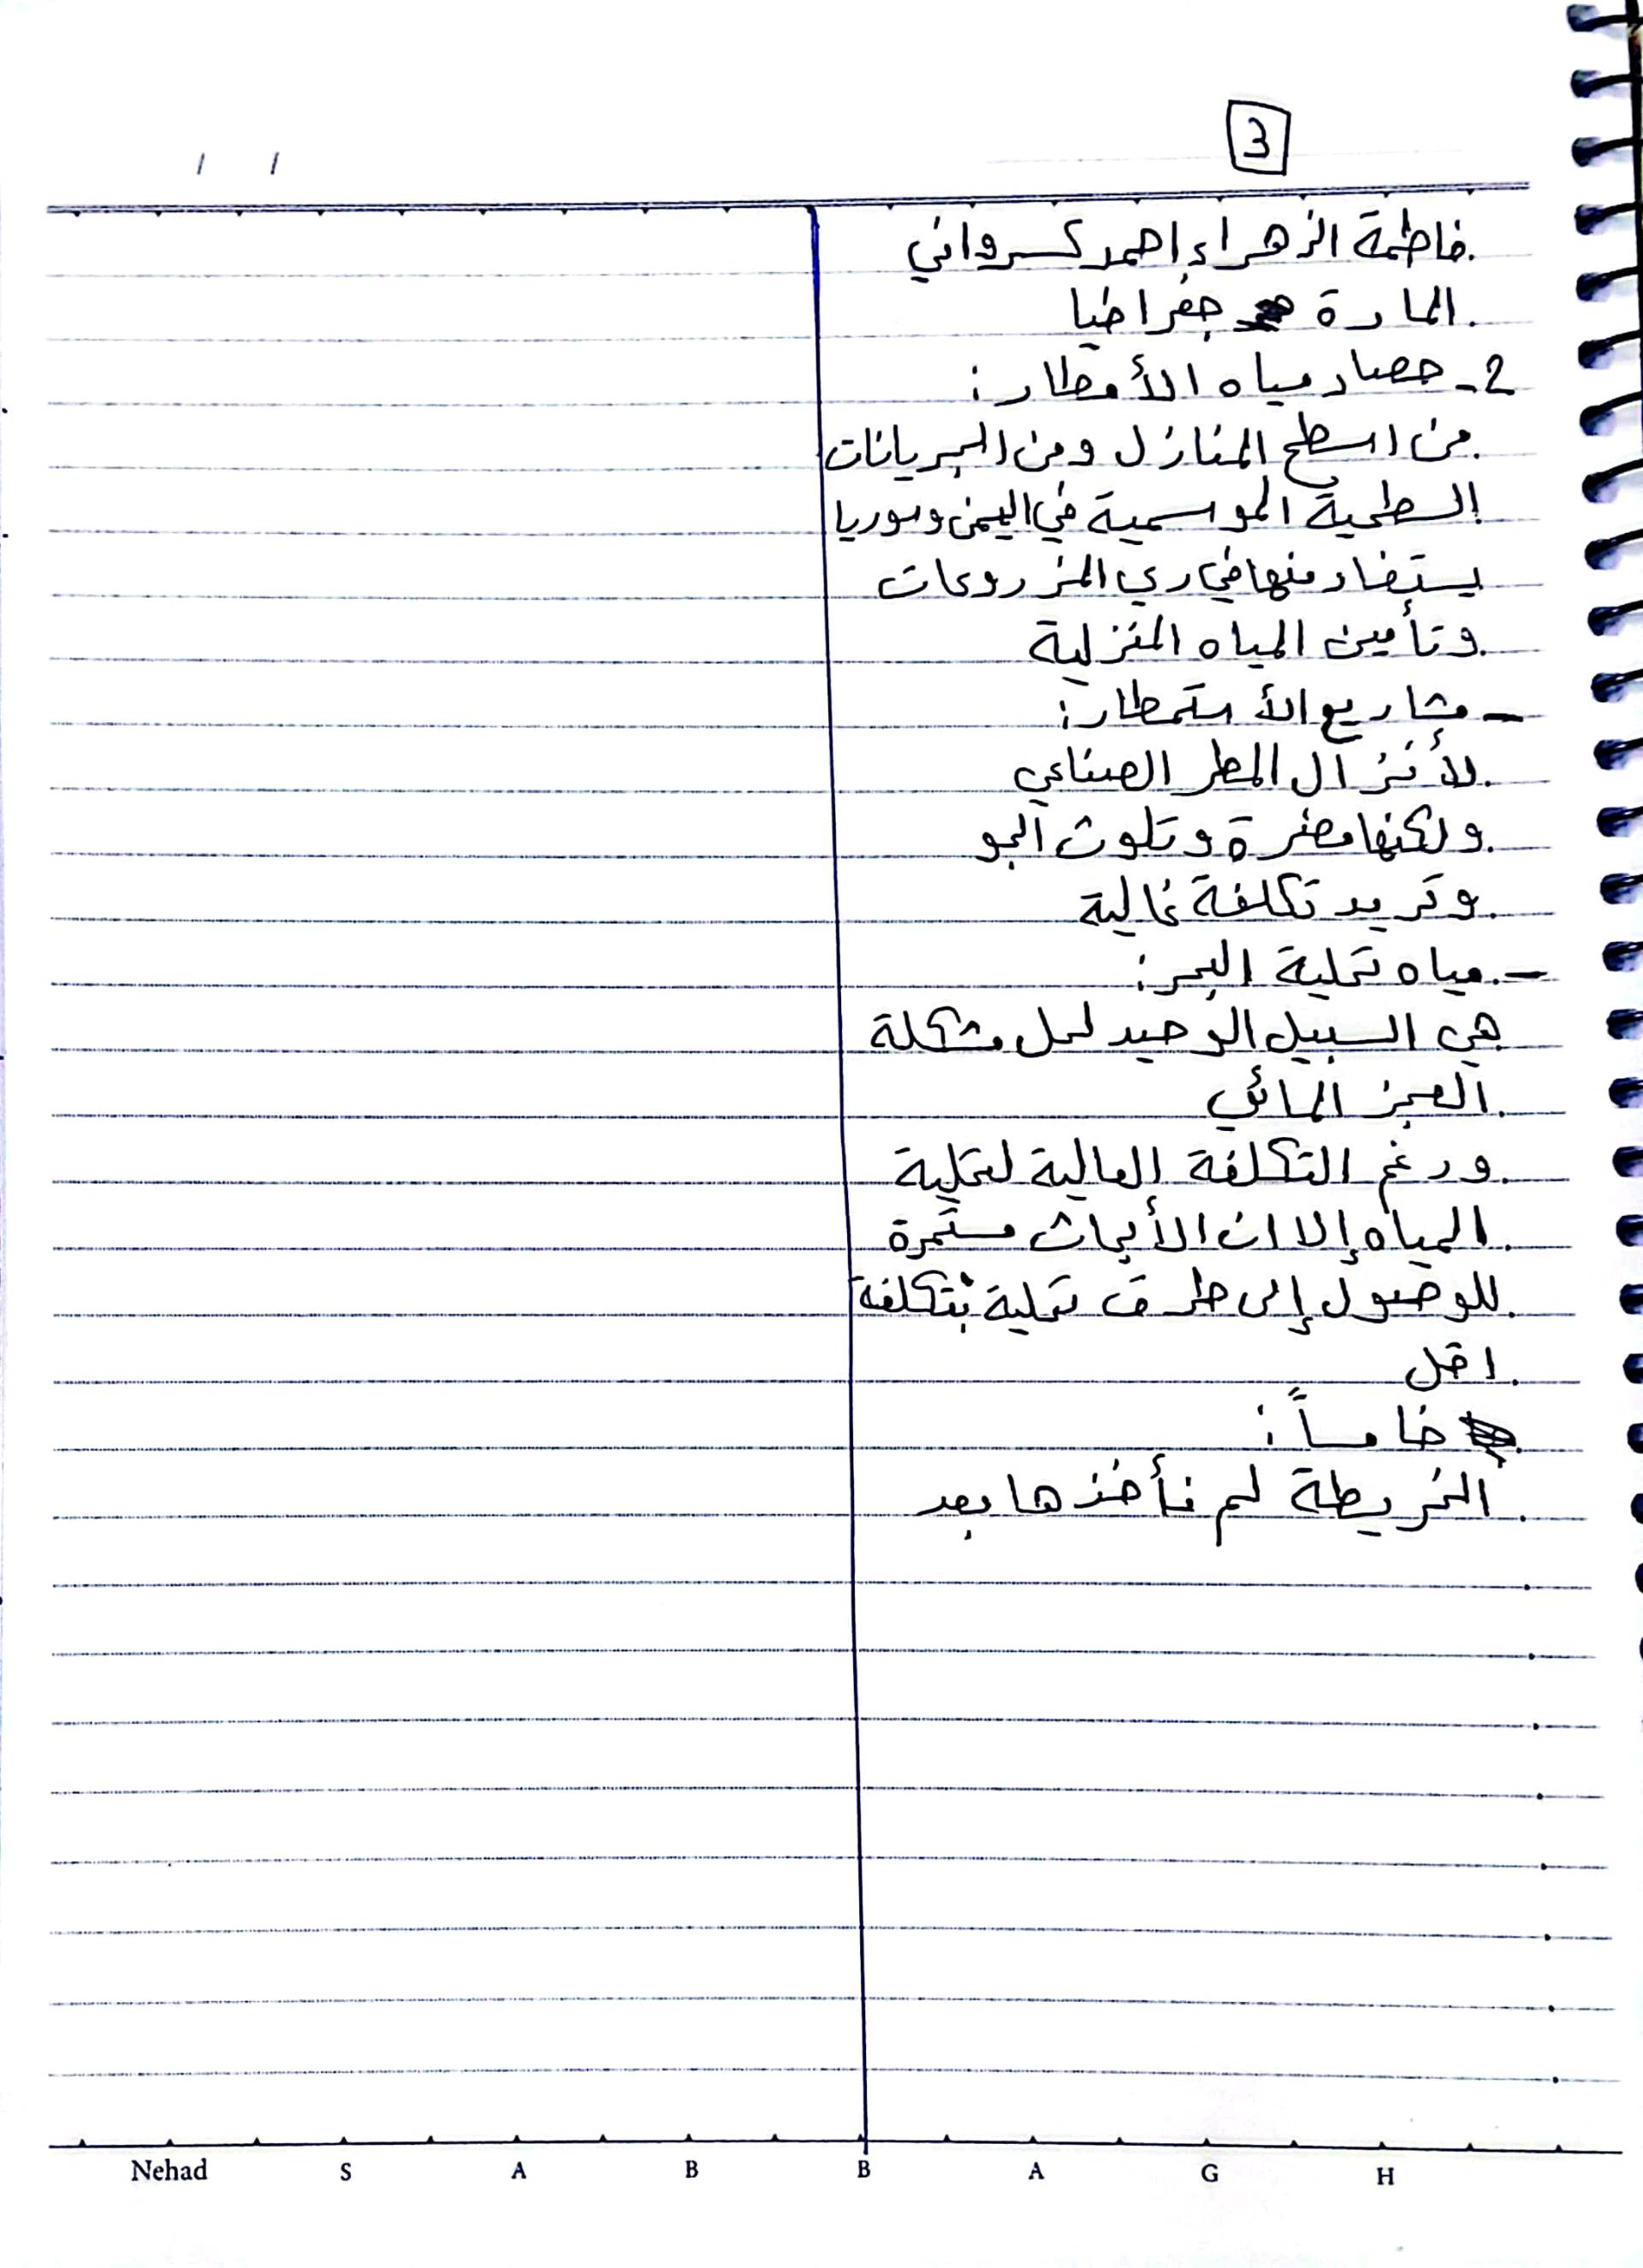 3
/ /
فاطمة الزهراء احمد كسرواني
المادة جغرافيا
2- حصاد مياه الأمطار:
من اسطح المنازل ومن الجريانات
السطحية الموسمية في اليمن وسوريا
يستفاد منها في ري المزروعات
وتأمين المياه المنزلية
- مشاريع الأستمطار:
لأنزال المطر الصناعي
ولكنها مضرة وتلوث الجو
وتريد تكلفة غالية
- مياه تحلية البحر:
هي السبيل الوحيد لحل مشكلة
العجز المائي
ورغم التكلفة العالية لتحلية
المياه إلا ان الأبحاث مستمرة
للوصول إلى طرق تحلية بتكلفة
اقل
خامساً:
الخريطة لم نأخذها بعد
Nehad S A B B A G H